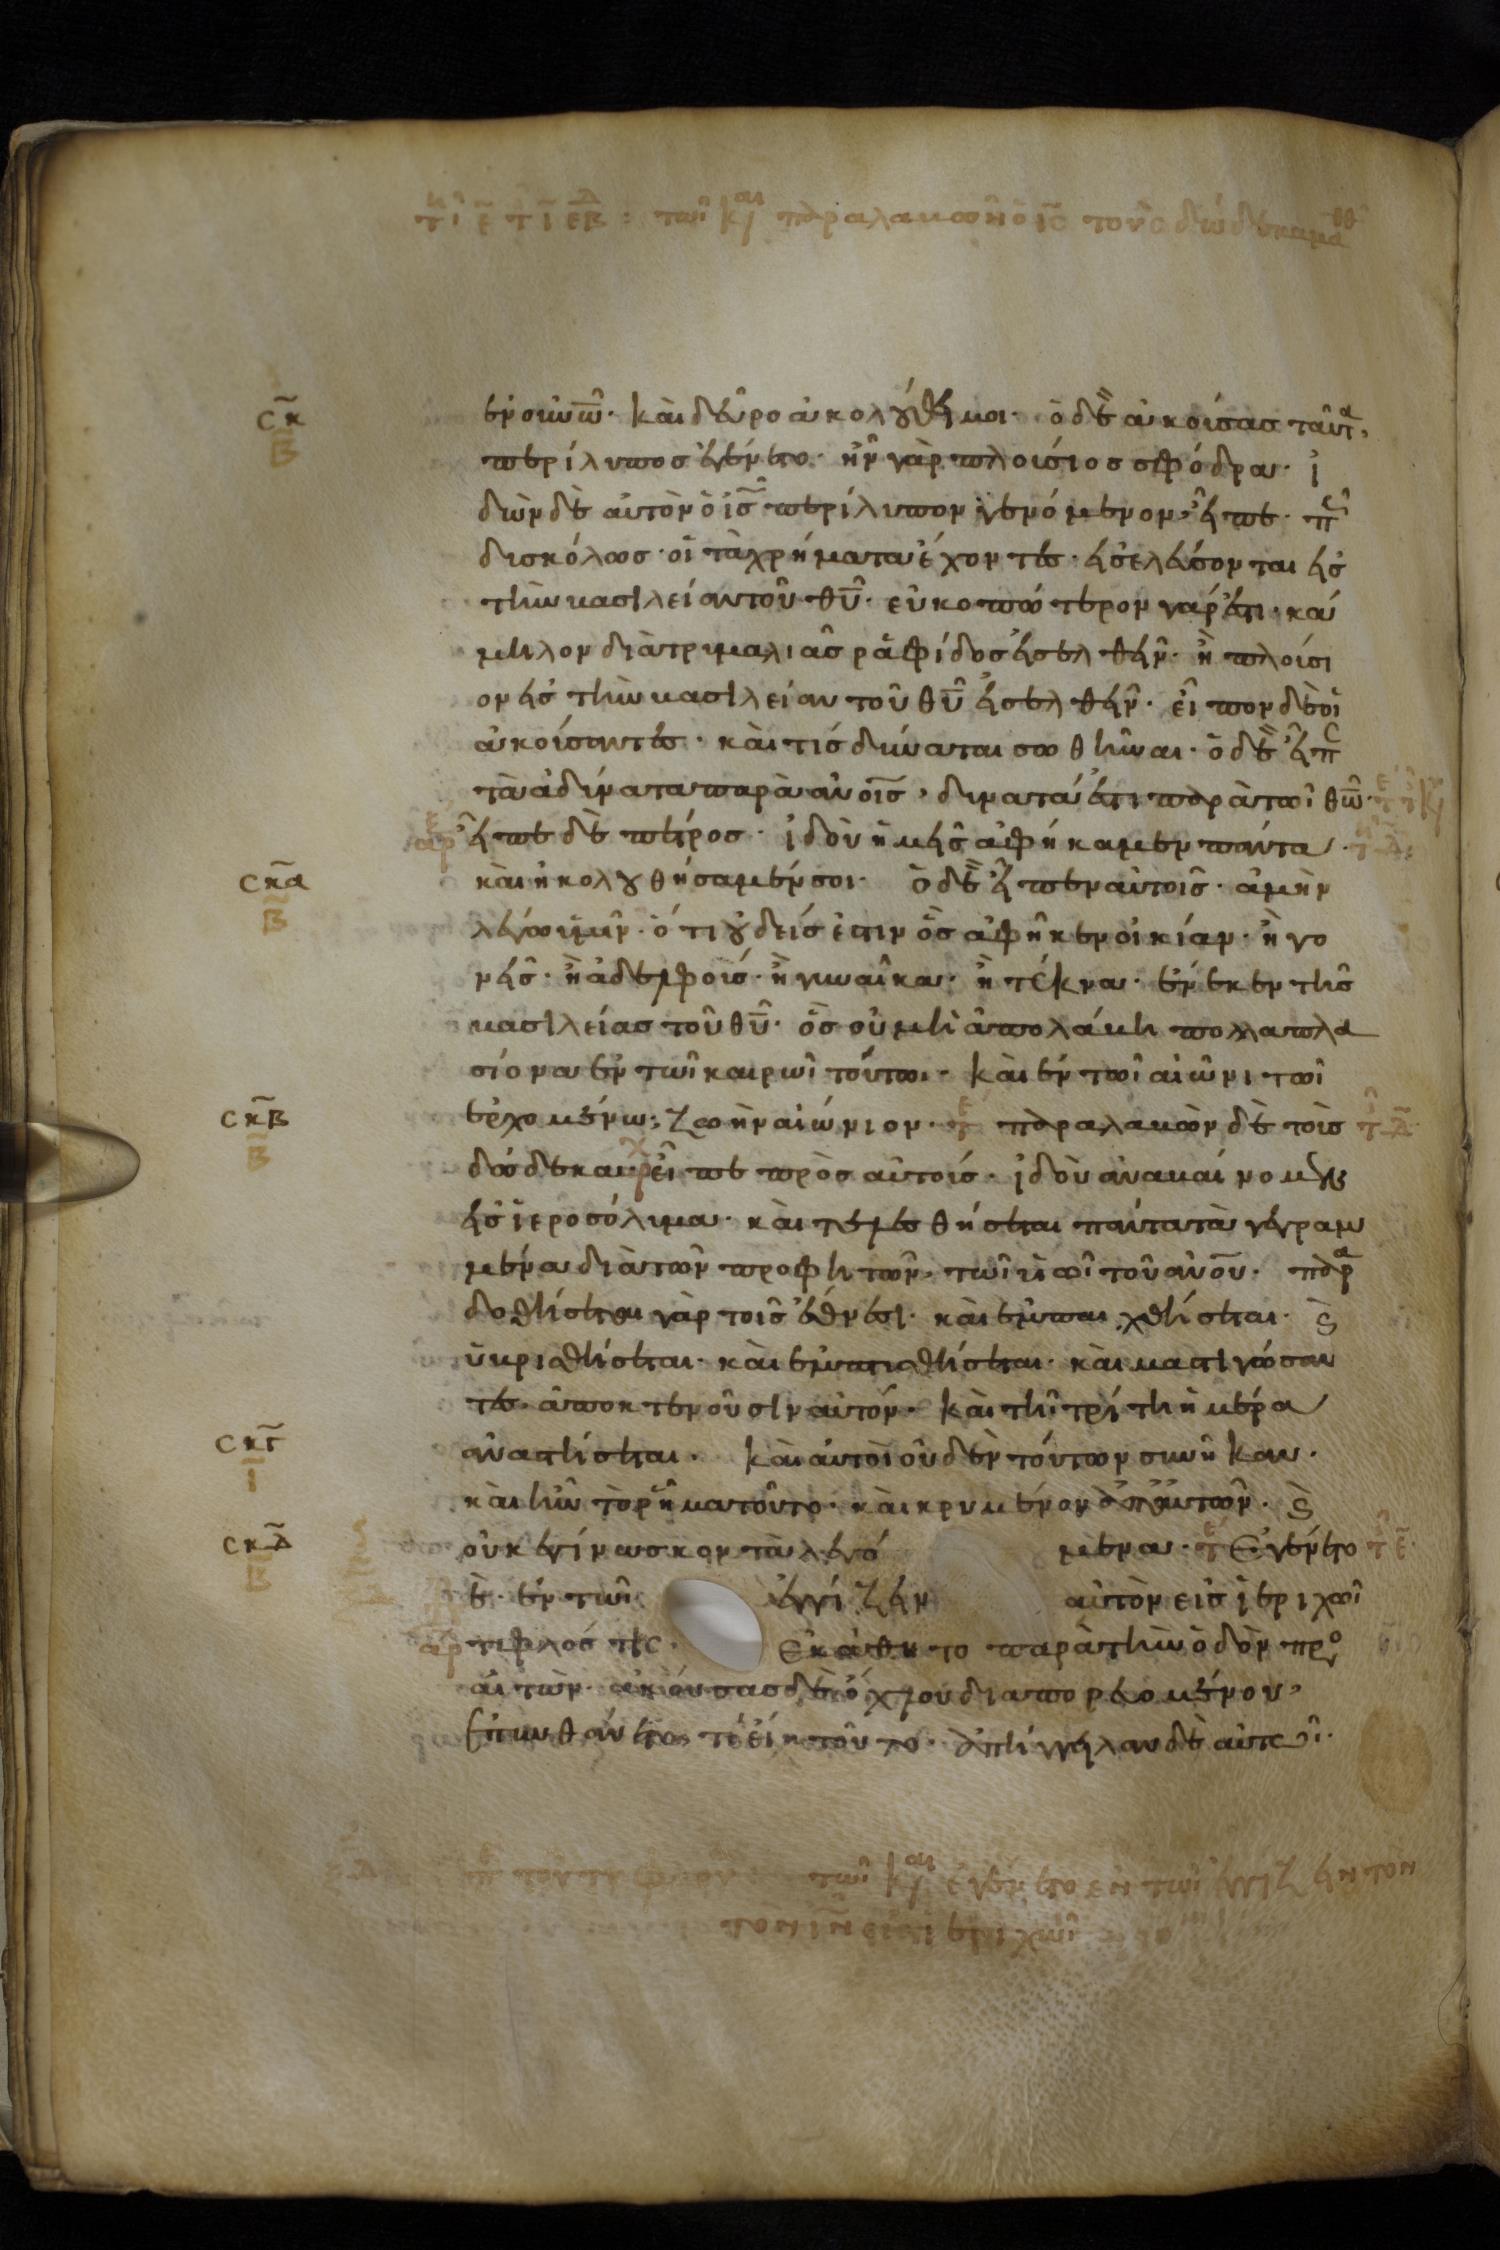 τῆ ε τῆς ιβ : τῶ κ/ παραλαμβάνει ὁ ις τοὺς δώδεκα μαθ
σκ β
ἐν οὐνῶ· καὶ δεῦρο ἀκολούθει μοι· ὁ δὲ ἀκούσας ταῦτα,
περίλυπος ἐγένετο· ἦν γὰρ πλούσιος σφόδρα· ἰ
δὼν δὲ αὐτὸν ὁ ις περίλυπον γενόμενον, εἶπε· π
δυσκόλως οἱ τὰ χρήματα ἔχοντες· εἰσελεύσονται εἰς
τὴν βασιλείαν τοῦ θυ· εὐκοπώτερον γάρ ἐστι· κά
μηλον διὰ τρυμαλιᾶς ῥαφίδος εἰσελθεῖν· ἢ πλούσι
ον εἰς τὴν βασιλείαν τοῦ θυ εἰσελθεῖν· εἶπον δὲ οἱ
ἀκούσαντες· καὶ τίς δύναται σωθῆναι· ὁ δὲ εἶπ
τὰ ἀδύνατα παρὰ ανοις, δυνατά ἐστι παρὰ τῶ θω·
ἀρ εἶπε δὲ πέτρος· ἰδοὺ ἡμεῖς ἀφήκαμεν πάντα
σκα β
καὶ ἠκολουθήσαμέν σοι· ὁ δὲ εἶπεν αὐτοῖς· ἀμὴν
λέγω ὑμῖν· ὅτι οὐδείς ἐστιν ὃς ἀφῆκεν οἰκίαν· ἢ γο
νεῖς· ἢ ἀδελφούς· ἢ γυναῖκα· ἢ τέκνα· ἕνεκεν τῆς
βασιλείας τοῦ θυ· ὃς οὐ μὴ ἀπολάβη πολλαπλα
σίονα ἐν τῶι καιρῶι τούτωι· καὶ ἐν τῶι αἰῶνι τῶι
σκβ β
ἐρχομένω, ζωὴν αἰώνιον· παραλαβὼν δὲ τοὺς
δώδεκα εἶπε πρὸς αὐτούς· ἰδοὺ ἀναβαίνομεν
εἰς ἱεροσόλυμα· καὶ τελεσθήσεται πάντα τὰ γεγραμ
μένα διὰ τῶν προφητῶν, τῶι υἱῶι τοῦ ανου· παρα
δοθήσεται γὰρ τοῖς ἔθνεσι· καὶ ἐμπαιχθήσεται· καὶ
ὑβρισθήσεται· καὶ ἐμπτυσθήσεται· καὶ μαστιγώσαν
τες ἀποκτενοῦσιν αὐτόν· καὶ τῆ τρίτη ἡμέρα
σκγ ι
ἀναστήσεται· καὶ αὐτοὶ οὐδὲν τούτων συνῆκαν·
καὶ ἦν τὸ ῥῆμα τοῦτο· καὶ κρυμένον ἀπ' αὐτῶν· καὶ
σκδ β
οὐκ ἐγίνωσκον τὰ λεγόμενα· Ἐγένετο
δὲ· ἐν τῶι ἐγγίζειν αὐτὸν εἰς ἱεριχῶι
τυφλός τις· ἐκάθητο παρὰ τὴν ὁδὸν προ
αιτῶν· ἀκούσας δὲ ὄχλου διαπορευομένου,
ἐπυνθάνετο, τί εἴη τοῦτο· ἀπήγγειλαν δὲ αὐτῶι·
τῶ κ/ ἐγένετο ἐν τῶ ἐγγίζειν τὸν